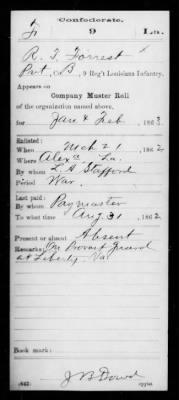 Confederate.
F 9 La.
R. T. Forrest
Pvt, Co. B, 9 Reg't Louisiana Infantry.
Appears on
Company Muster Roll
of the organization named above,
for Jan & Feb, 1863
Enlisted:
When Mch 21, 1862
Where Alexa La.
By whom L. A. Stafford
Period War
Last paid:
By whom Paymaster
To what time Aug 31, 1862
Present or absent Absent
Remarks: On Provost Guard
at Liberty Va
Book mark:
(642)